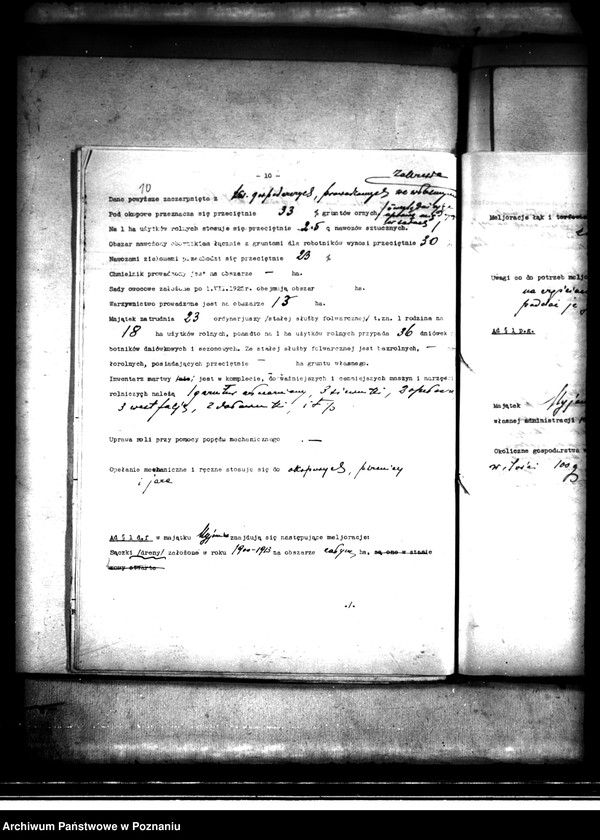 - 10 -
10
Dane powyższe zaczerpnięte z ks. gospodarczych, prowadzonych we własnym
Pod okopowe przeznacza się przeciętnie 33 % gruntów ornych
Na 1 ha użytków rolnych stosuje się przeciętnie 2.5 q nawozów sztucznych.
Obszar nawożony obornikiem łącznie z gruntami dla robotników wynosi przeciętnie 30
Nawozami zielonemi przechodzi się przeciętnie 23 %
Chmielnik prowadzony jest na obszarze - ha.
Sady owocowe założone po 1.VII.1925r. obejmują obszar ha.
Warzywnictwo prowadzone jest na obszarze 13 ha.
Majątek zatrudnia 23 ordynarjuszy /stałej służby folwarcznej/ t.zn. 1 rodzina na
18 ha użytków rolnych, ponadto na 1 ha użytków rolnych przypada 36 dniówek
botników dniówkowych i sezonowych. Ze stałej służby folwarcznej jest bezrolnych, -
łorolnych, posiadających przeciętnie - ha gruntu własnego.
Inwentarz martwy /nie/ jest w komplecie, do ważniejszych i cenniejszych maszyn i narzędzi
rolniczych należą 1 garnitur omłotowy, 3 siewniki,
2 i t p
Uprawa roli przy pomocy popędu mechanicznego . -
Opełanie mechaniczne i ręczne stosuje się do okopowych, pszenicy
i jare
Ad § 1 d.f w majątku znajdują się następujące meljoracje:
Sączki /dreny/ założone w roku 1900-1913 na obszarze całym, ha. są one w stanie
rowy otwarte -
./.
Meljoracje łąk i
Uwagi co do potrzeb melj
Ad § 1 p.g.
Majątek
własnej administracji
Okoliczne gospodarstwa
w ilości 100 g
Archiwum Państwowe w Poznaniu